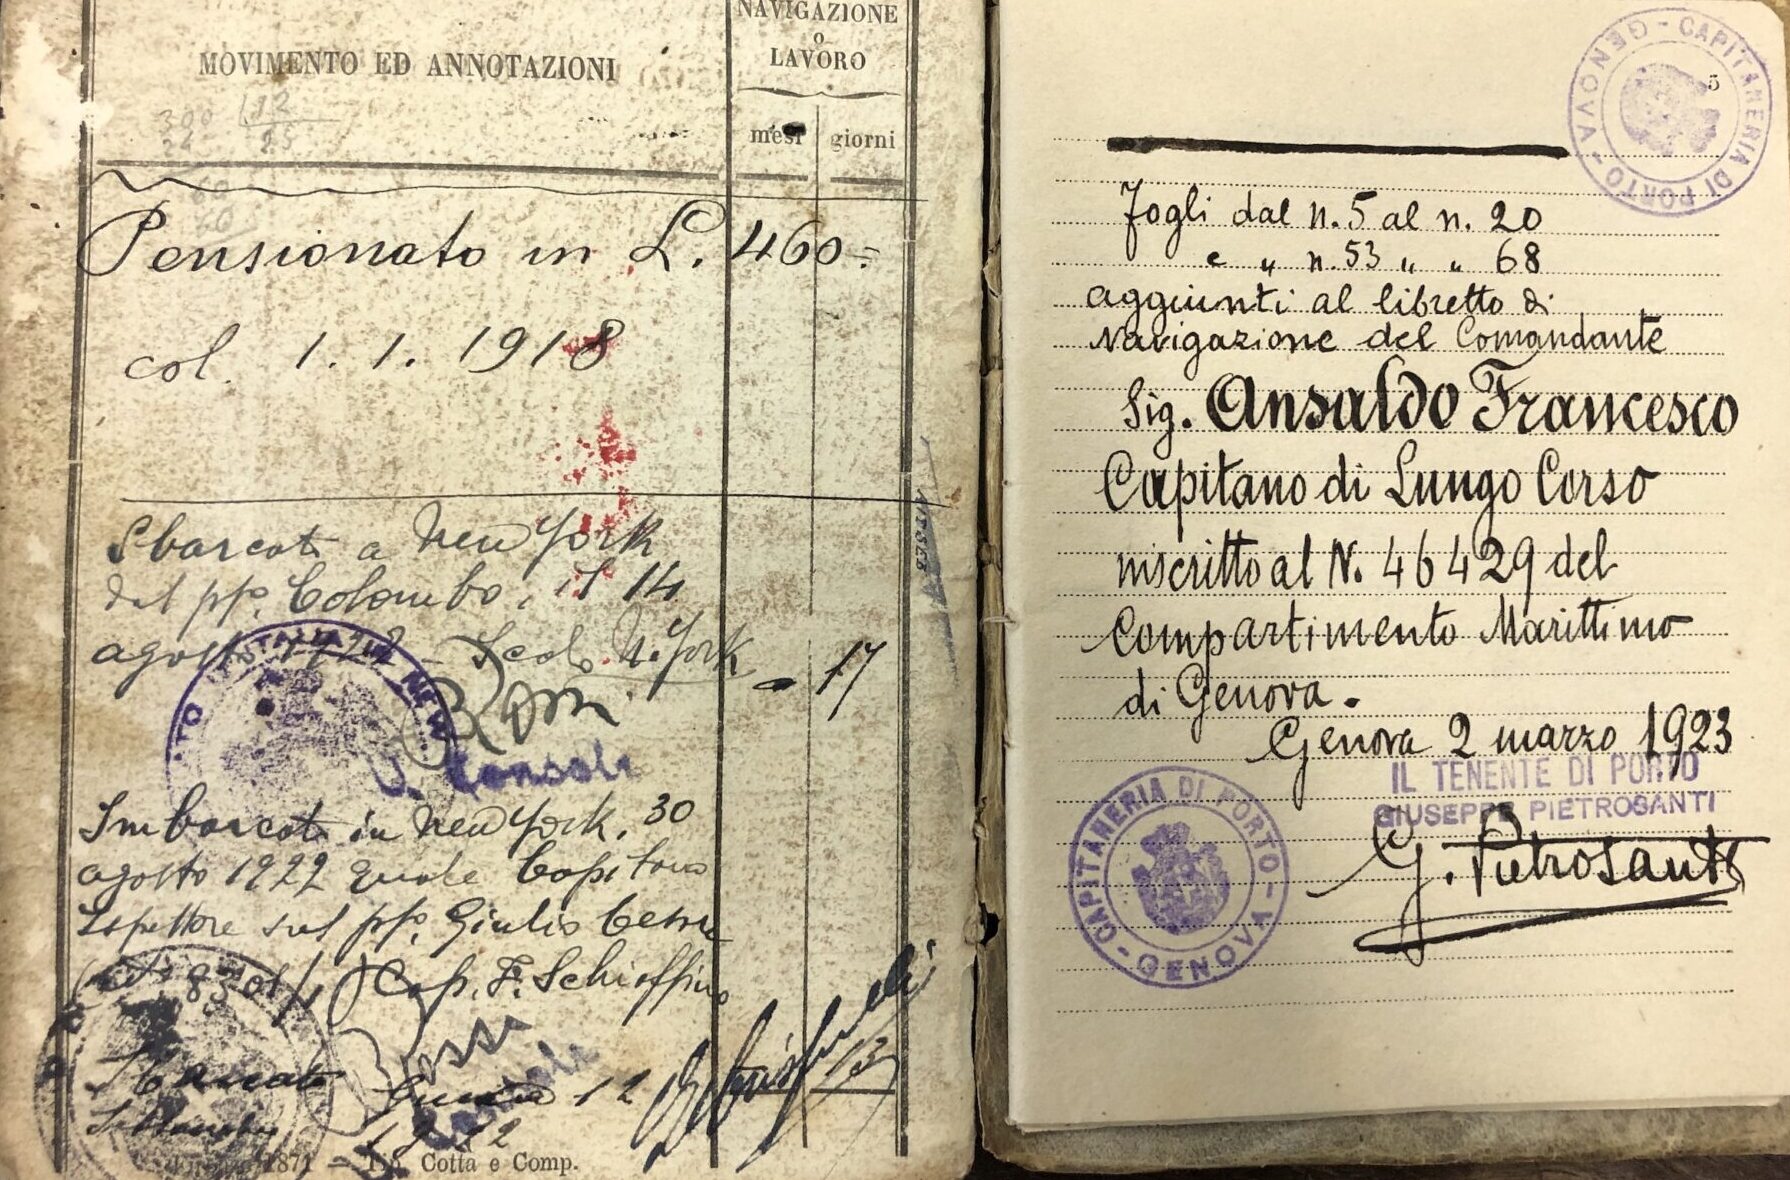 MOVIMENTO ED ANNOTAZIONI
NAVIGAZIONE
o
LAVORO
mesi giorni
300 12
24 25
60
60
Pensionato in L. 460=
col. 1. 1. 1918
Sbarcato a New York
dal pfo. Colombo, il 14
agosto 1922 - Scalo N. York - 17
ATO ITALIA NEW
V. Console
Imbarcato in New York, 30
agosto 1922 quale Capitano
Ispettore sul pfo. Giulio Cesare
8301 Cap. F. Schiaffino
Rossi
Console
Sbarcato Genova 12
Settembre 1922
13
1871 — Tip. Cotta e Comp.
CAPITANERIA DI PORTO - GENOVA -
5
Fogli dal n. 5 al n. 20
e " n. 53 " " 68
aggiunti al libretto di
Navigazione del Comandante
Sig. Ansaldo Francesco
Capitano di Lungo Corso
inscritto al N. 46429 del
Compartimento Marittimo
di Genova.
Genova 2 marzo 1923
IL TENENTE DI PORTO
GIUSEPPE PIETROSANTI
G. Pietrosanti
CAPITANERIA DI PORTO - GENOVA -